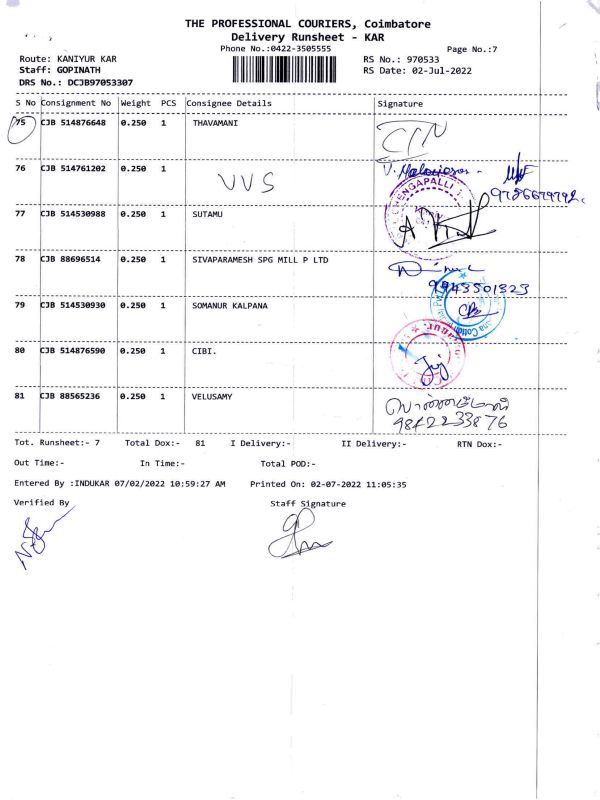 THE PROFESSIONAL COURIERS, Coimbatore
Delivery Runsheet - KAR
Phone No.:0422-3505555
Page No.:7
Route: KANIYUR KAR
RS No.: 970533
Staff: GOPINATH
RS Date: 02-Jul-2022
DRS No.: DCJB97053307
S No Consignment No Weight PCS Consignee Details Signature
75 CJB 514876648 0.250 1 THAVAMANI
76 CJB 514761202 0.250 1 VVS
CHENGAPALLI
77 CJB 514530988 0.250 1 SUTAMU
78 CJB 88696514 0.250 1 SIVAPARAMESH SPG MILL P LTD
9943501323
79 CJB 514530930 0.250 1 SOMANUR KALPANA
80 CJB 514876590 0.250 1 CIBI.
81 CJB 88565236 0.250 1 VELUSAMY
9842233876
Tot. Runsheet:- 7 Total Dox:- 81 I Delivery:- II Delivery:- RTN Dox:-
Out Time:- In Time:- Total POD:-
Entered By :INDUKAR 07/02/2022 10:59:27 AM Printed On: 02-07-2022 11:05:35
Verified By Staff Signature